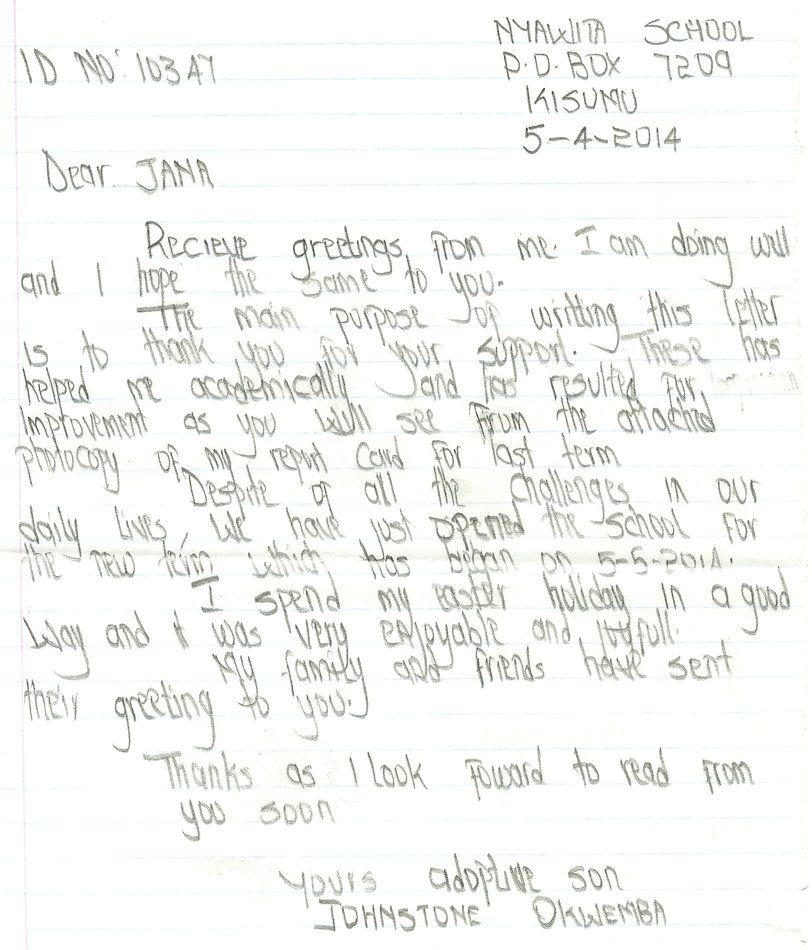 NYAWITA SCHOOL
ID NO: 10347
P.O. BOX 7209
KISUMU
5-4-2014
Dear JANA
Recieve greetings from me. I am doing well
and I hope the same to you.
The main purpose of writting this letter
is to thank you for your support. These has
helped me academically and has resulted for
improvement as you will see from the attached
photocopy of my report card for last term
Despite of all the challenges in our
daily lives, we have just opened the school for
the new term which has began on 5-5-2014.
I spend my easter holiday in a good
way and it was very enjoyable and joyfull.
My family and friends have sent
their greeting to you.
Thanks as I look foward to read from
you soon
yours adoptive son
JOHNSTONE OKWEMBA